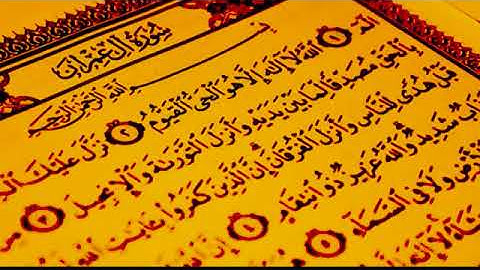 سُورَةُ آلِ عِمْرَانَ
بِسْمِ ٱللَّهِ ٱلرَّحْمَٰنِ ٱلرَّحِيمِ
الٓمٓ ١ ٱللَّهُ لَآ إِلَٰهَ إِلَّا هُوَ ٱلْحَىُّ ٱلْقَيُّومُ ٢ نَزَّلَ عَلَيْكَ
بِٱلْحَقِّ مُصَدِّقًا لِّمَا بَيْنَ يَدَيْهِ وَأَنزَلَ ٱلتَّوْرَىٰةَ وَٱلْإِنجِيلَ ٣ مِن
قَبْلُ هُدًى لِّلنَّاسِ وَأَنزَلَ ٱلْفُرْقَانَ إِنَّ ٱلَّذِينَ كَفَرُوا۟ بِـَٔايَٰتِ ٱللَّهِ
شَدِيدٌ وَٱللَّهُ عَزِيزٌ ذُو ٱنتِقَامٍ ٤ إِنَّ
وَلَا فِى ٱلسَّمَآءِ ٥
لَآ إِلَٰهَ